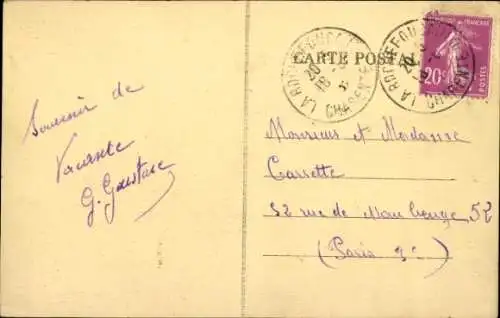 Souvenir de
Vacance
G. Gaustare
CARTE POSTALE
LA ROCHEFOUCAULD
CHARENTE
20c
POSTES
Monsieur et Madame
Cassette
52 rue de Maubeuge, 52
(Paris 9e)